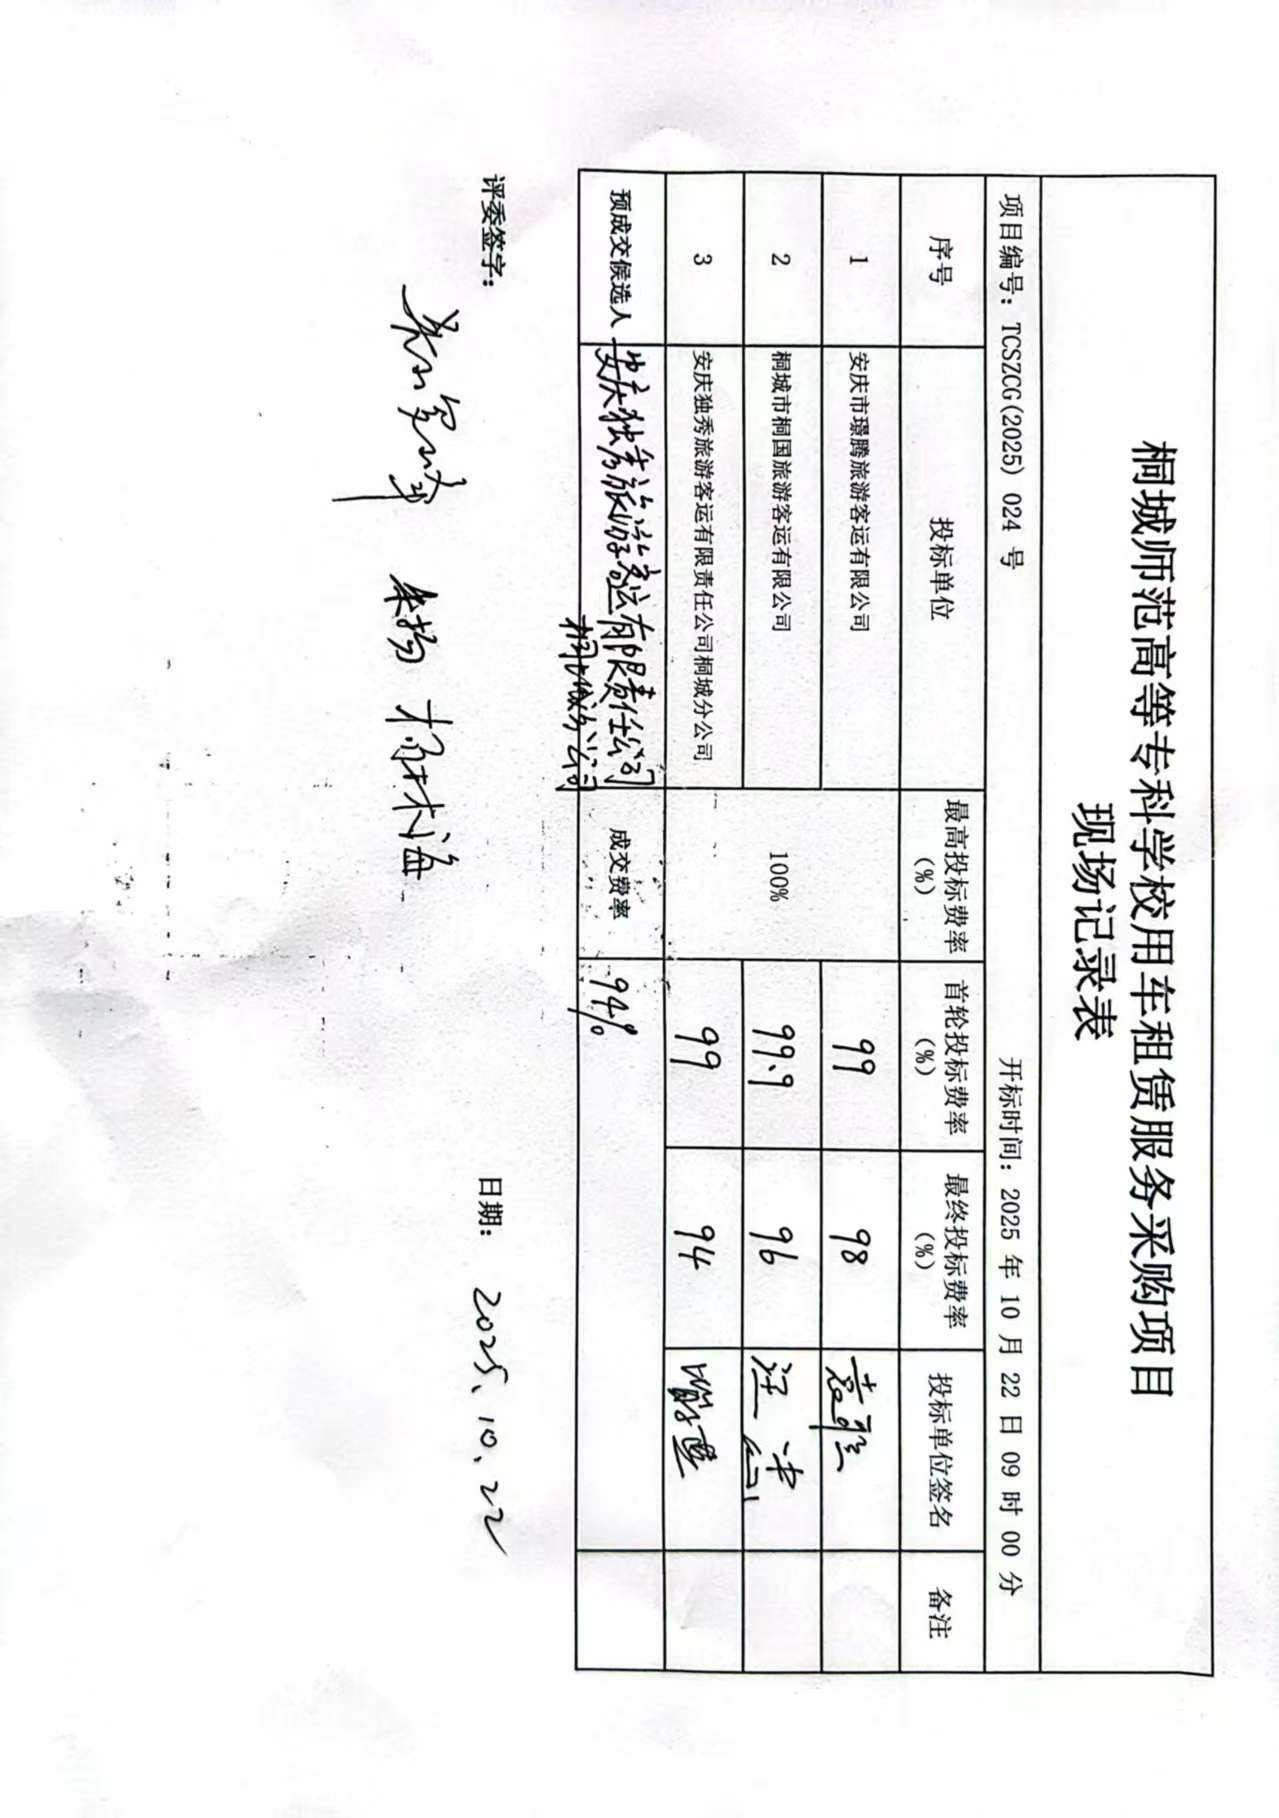 桐城师范高等专科学校用车租赁服务采购项目
现场记录表
项目编号：TCSZCG(2025) 024 号 开标时间：2025 年 10 月 22 日 09 时 00 分
序号 投标单位 最高投标费率(%) 首轮投标费率(%) 最终投标费率(%) 投标单位签名 备注
1 安庆市璟腾旅游客运有限公司 100% 99 98
2 桐城市桐国旅游客运有限公司 99.9 96
3 安庆独秀旅游客运有限责任公司桐城分公司 99 94
预成交候选人 安庆独秀旅游客运有限责任公司 成交费率 94%
桐城分公司
评委签字： 日期： 2025、10、22
朱扬 杨林海